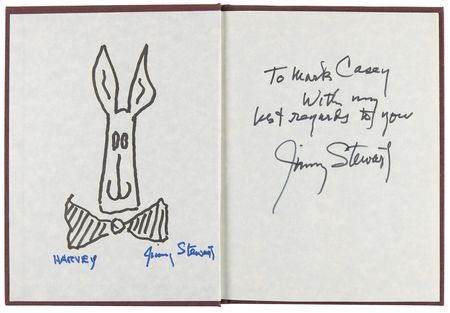 HARVEY
Jimmy Stewart
To Mark Casey
With my
best regards to you
Jimmy Stewart